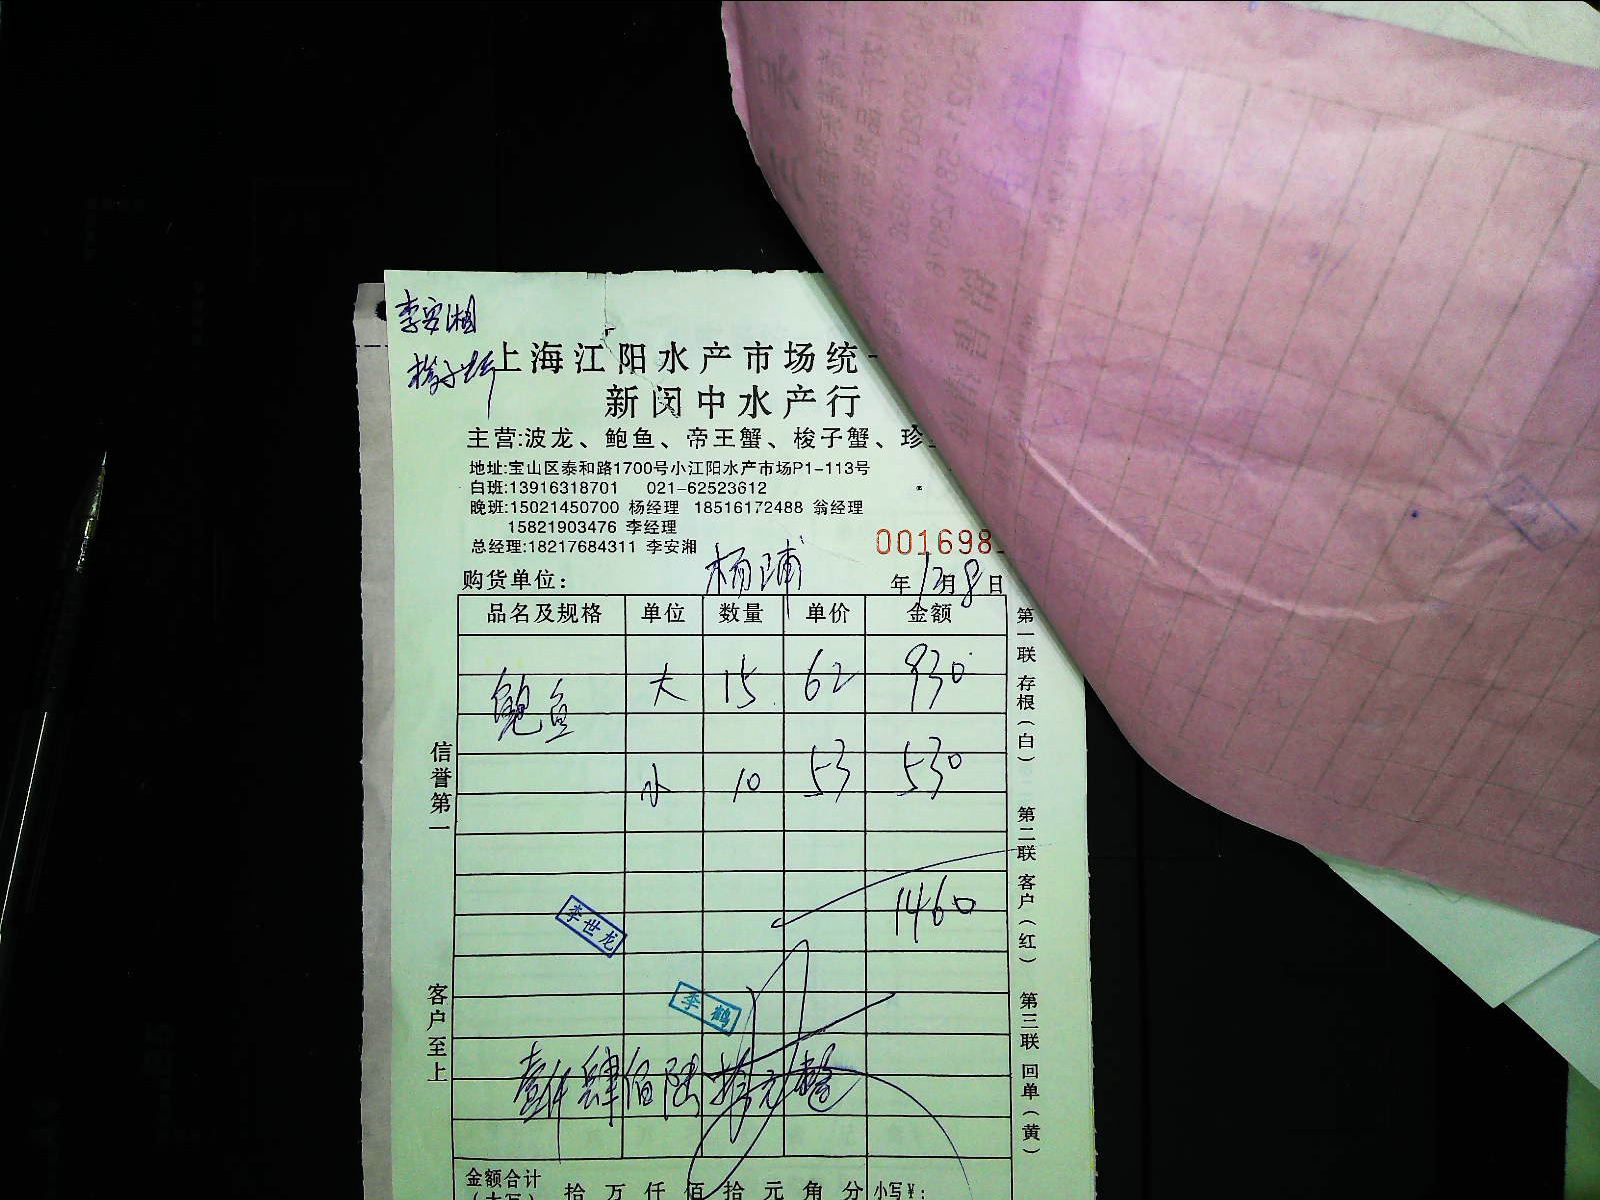 李安湘
梭子蟹
上海江阳水产市场统一
新闵中水产行
主营:波龙、鲍鱼、帝王蟹、梭子蟹、珍
地址:宝山区泰和路1700号小江阳水产市场P1-113号
白班:13916318701 021-62523612
晚班:15021450700 杨经理 18516172488 翁经理
15821903476 李经理
总经理:18217684311 李安湘
001698
购货单位: 杨埔 年12月8日
品名及规格 单位 数量 单价 金额
鲍鱼 大 15 62 930
小 10 53 530
1460
李世龙
李鹤
壹仟肆佰陆拾元整
金额合计
(大写) 拾 万 仟 佰 拾 元 角 分 小写¥:
信誉第一
客户至上
第一联 存根(白)
第二联 客户(红)
第三联 回单(黄)